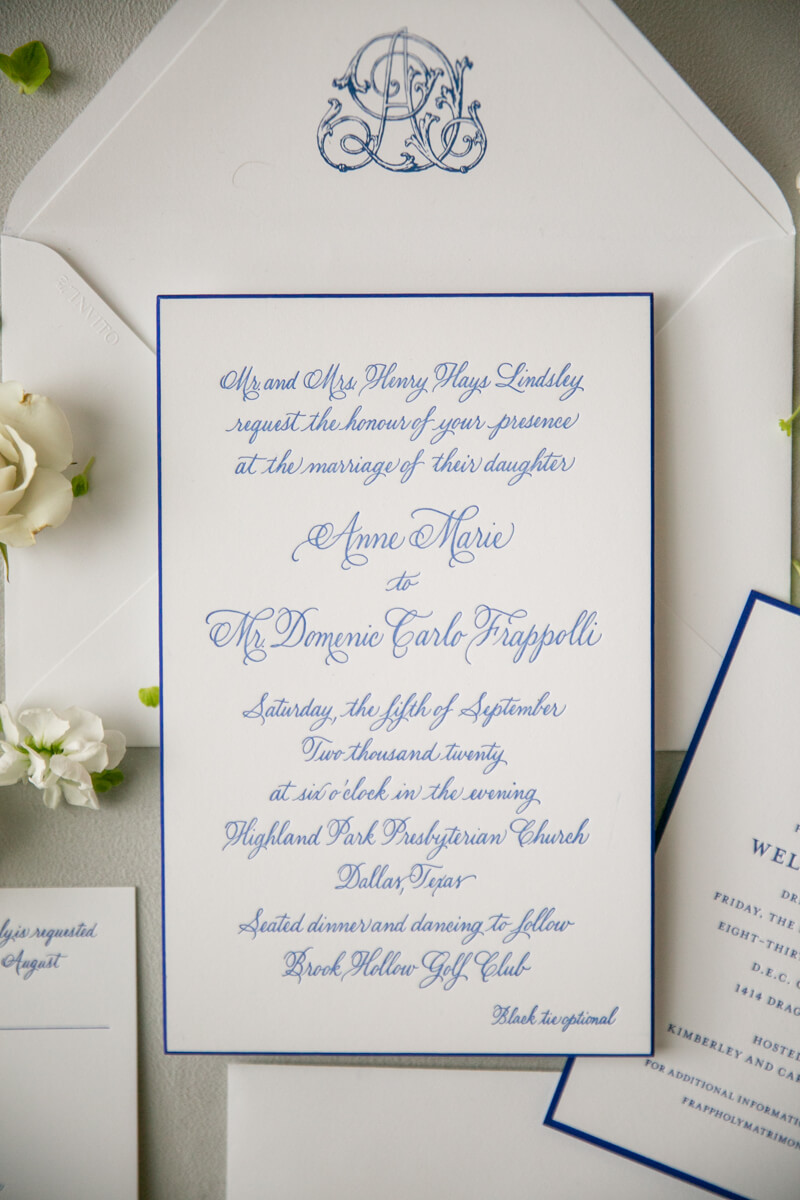 INVITO
Mr. and Mrs. Henry Hays Lindsley
request the honour of your presence
at the marriage of their daughter
Anne Marie
to
Mr. Domenic Carlo Frappolli
Saturday, the fifth of September
Two thousand twenty
at six o'clock in the evening
Highland Park Presbyterian Church
Dallas, Texas
Seated dinner and dancing to follow
Brook Hollow Golf Club
Black tie optional
is requested
August
WEL
FRIDAY, THE
EIGHT-THIR
D.E.C.
1414 DRAG
HOSTED
KIMBERLEY AND CAR
FOR ADDITIONAL INFORMATIO
FRAPPHOLYMATRIMON